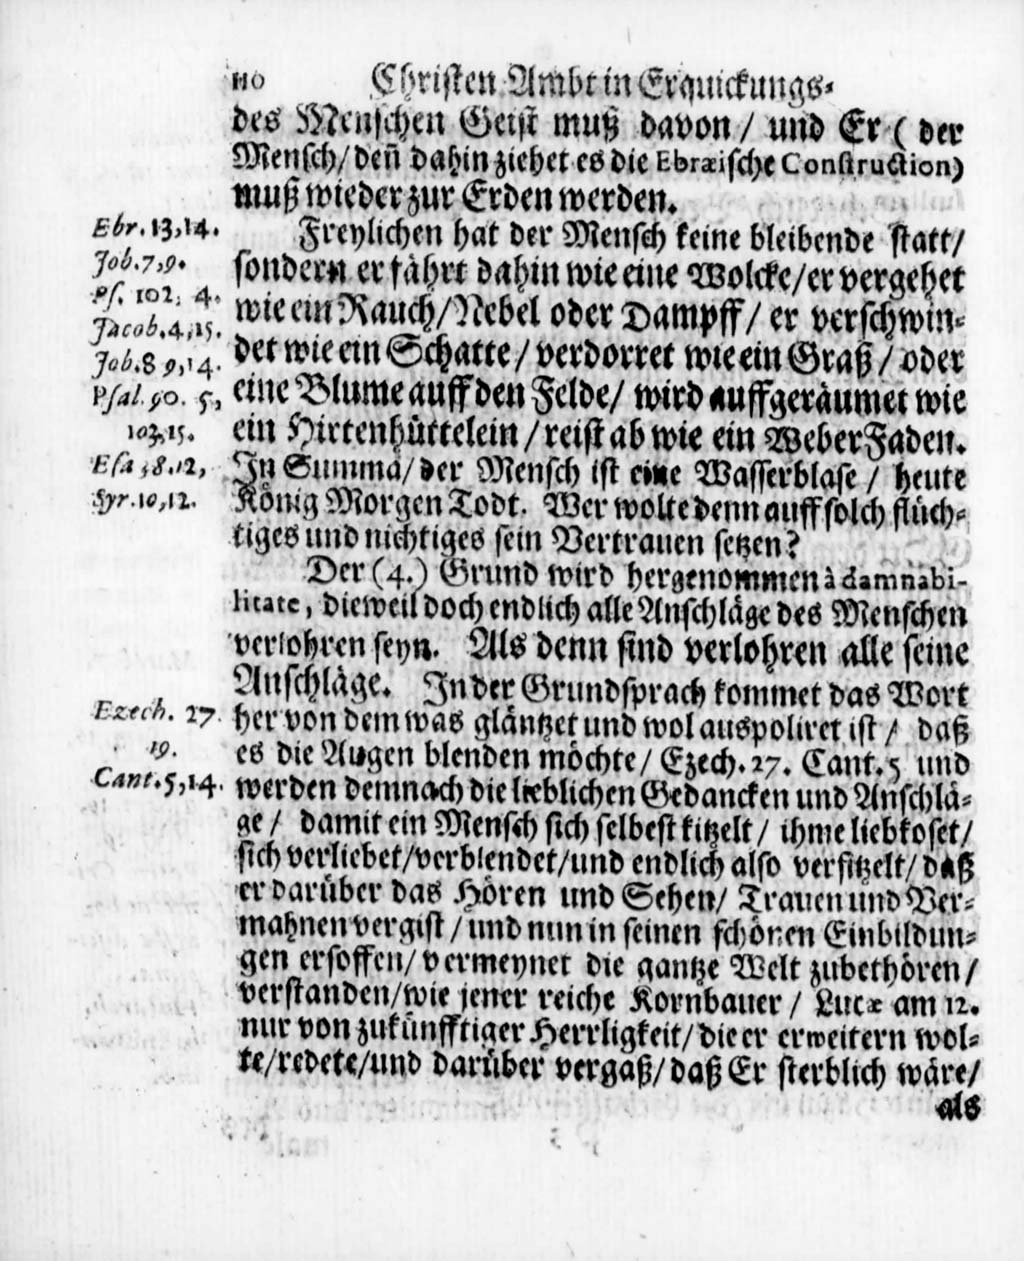 110 Christen Ambt in Erquickungs-
des Menschen Geist muß davon / und Er ( der
Mensch/ deñ dahin ziehet es die Ebræische Construction)
muß wieder zur Erden werden.
Ebr. 13,14.
Freylichen hat der Mensch keine bleibende statt/
Job. 7,9.
sondern er fährt dahin wie eine Wolcke/ er vergehet
Ps. 102, 4.
wie ein Rauch/ Nebel oder Dampff / er verschwin-
Jacob. 4,15.
Job. 8 9,14.
det wie ein Schatte / verdorret wie ein Graß / oder
Psal. 90. 5,
eine Blume auff den Felde/ wird auffgeräumet wie
103,15.
ein Hirtenhüttelein / reist ab wie ein Weber Faden.
Esa 38.12,
In Summa/ der Mensch ist eine Wasserblase / heute
Syr. 10,12.
König Morgen Todt. Wer wolte denn auff solch flüch-
tiges und nichtiges sein Vertrauen setzen?
Der (4.) Grund wird hergenommen à damnabi-
litate, dieweil doch endlich alle Anschläge des Menschen
verlohren seyn. Als denn sind verlohren alle seine
Anschläge. In der Grundsprach kommet das Wort
Ezech. 27.
her von dem was gläntzet und wol auspoliret ist / daß
19.
es die Augen blenden möchte / Ezech. 27. Cant. 5 und
Cant. 5,14.
werden demnach die lieblichen Gedancken und Anschlä-
ge / damit ein Mensch sich selbest kitzelt / ihme liebkoset/
sich verliebet/ verblendet/ und endlich also versitzelt/ daß
er darüber das Hören und Sehen/ Trauen und Ver-
mahnen vergist / und nun in seinen schönen Einbildun-
gen ersoffen/ vermeynet die gantze Welt zubethören /
verstanden/ wie jener reiche Kornbauer / Lucæ am 12.
nur von zukünfftiger Herrligkeit/ die er erweitern wol-
te/ redete/ und darüber vergaß/ daß Er sterblich wäre/
als